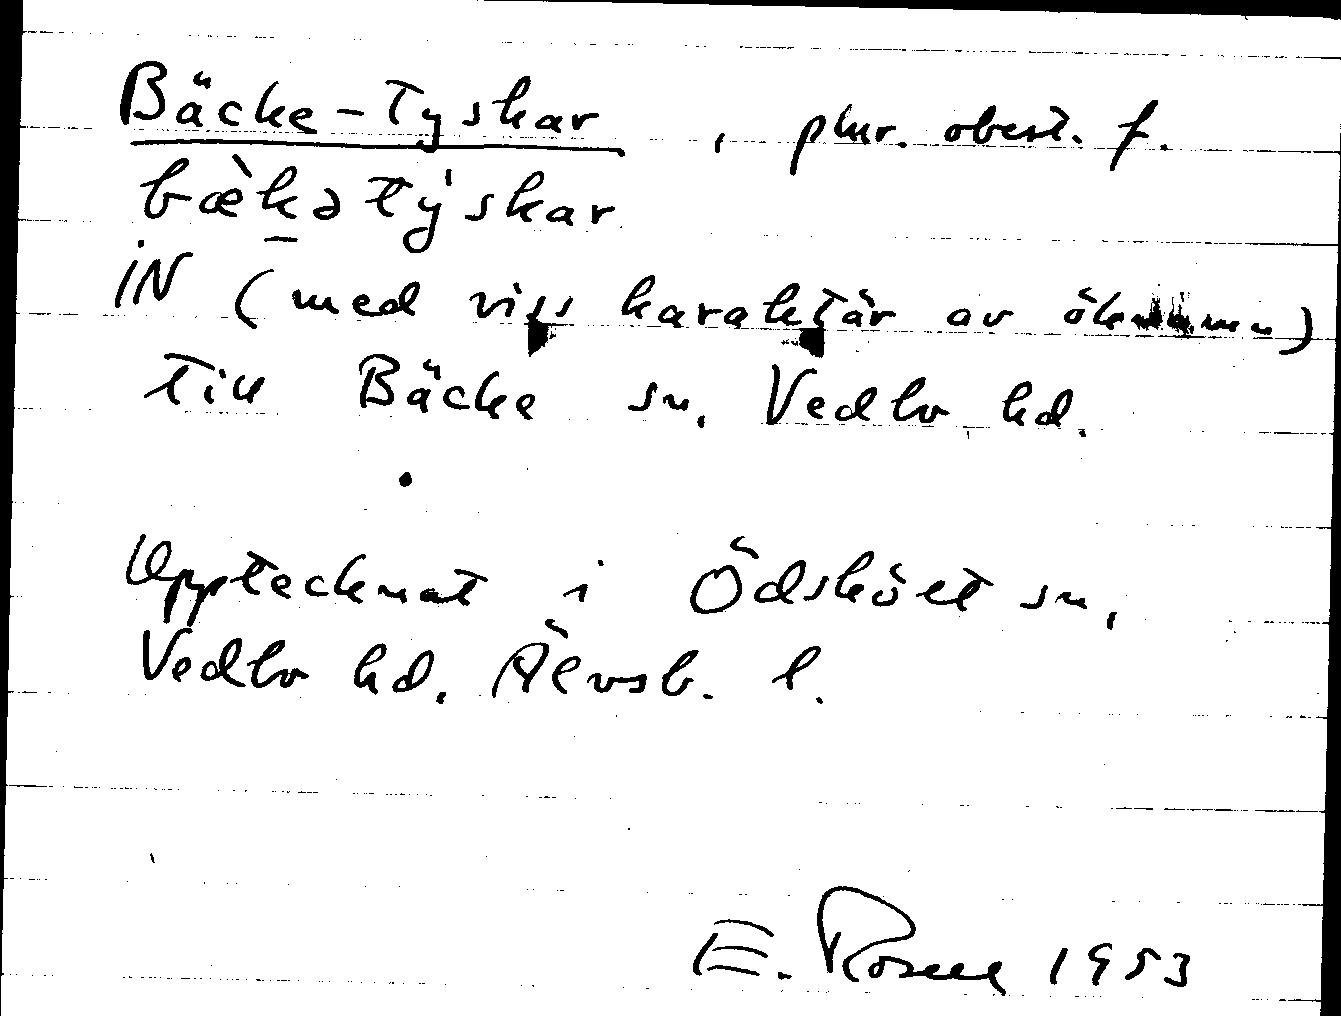 Bäcke-Tyskar, plur. obest. f.
bæ̀kətýskar
IN (med viss karaktär av öknamn)
till Bäcke sn, Vedbo hd.
Upptecknat i Ödskölt sn,
Vedbo hd, Älvsb. l.
E. Rosell 1953